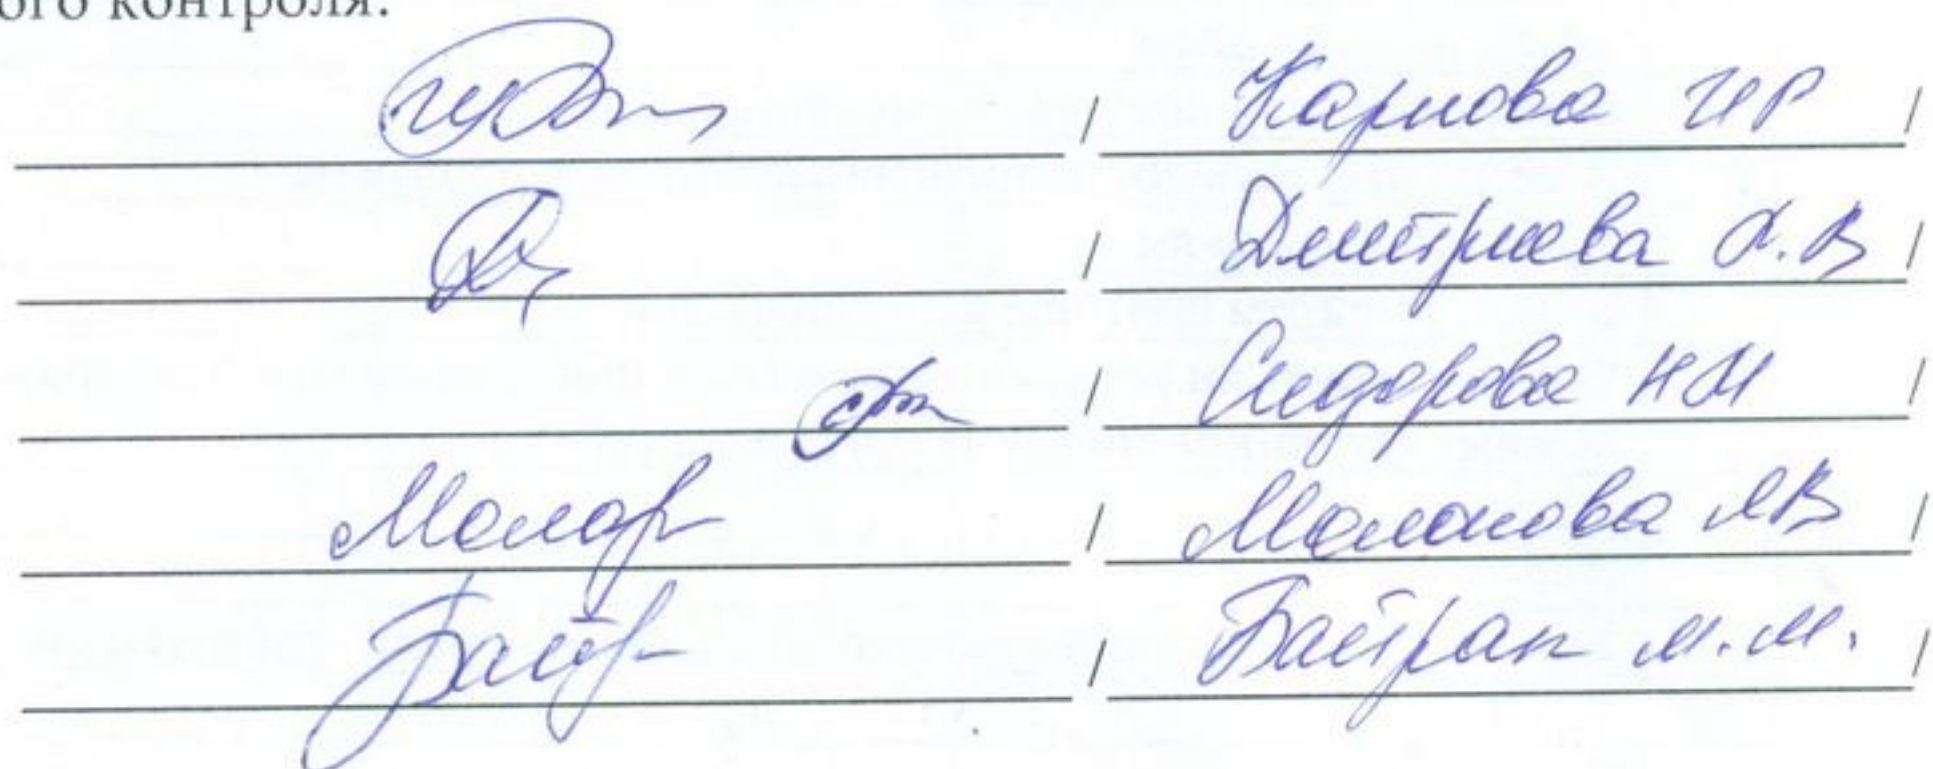 ого контроля:
/ Карпова ИР /
/ Дмитриева А.В /
/ Сидорова НИ /
/ МВ /
/ Байрак М.М. /